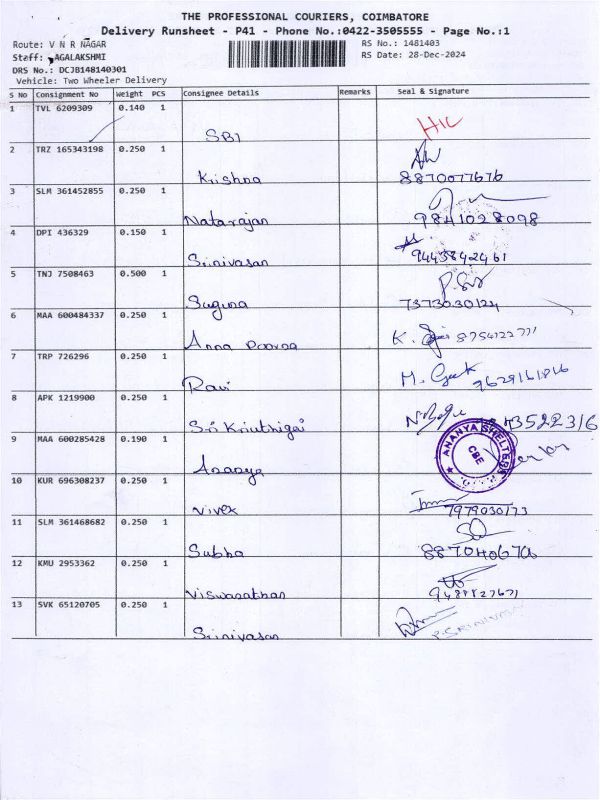 THE PROFESSIONAL COURIERS, COIMBATORE
Delivery Runsheet - P41 - Phone No.:0422-3505555 - Page No.:1
Route: V N R NAGAR
RS No.: 1481403
Staff: AGALAKSHMI
RS Date: 28-Dec-2024
DRS No.: DCJB148140301
Vehicle: Two Wheeler Delivery
S No Consignment No Weight PCS Consignee Details Remarks Seal & Signature
1 TVL 6209309 0.140 1
SBI HIC
2 TRZ 165343198 0.250 1
Krishna 8870077676
3 SLM 361452855 0.250 1
Natarajan 9841028098
4 DPI 436329 0.150 1
Srinivasan 9443842461
5 TNJ 7508463 0.500 1
Suguna 7373030124
6 MAA 600484337 0.250 1
Anna Poorna K. 8754122771
7 TRP 726296 0.250 1
Ravi M. 9629161816
8 APK 1219900 0.250 1
Sri Kriuthigai
9 MAA 600285428 0.190 1
Ananya ANANYA SHELTERS CBE
10 KUR 696308237 0.250 1
Vivek 7979030173
11 SLM 361468682 0.250 1
Subha
12 KMU 2953362 0.250 1
Viswanathan
13 SVK 65120705 0.250 1
Srinivasan P. SRINIVASAN